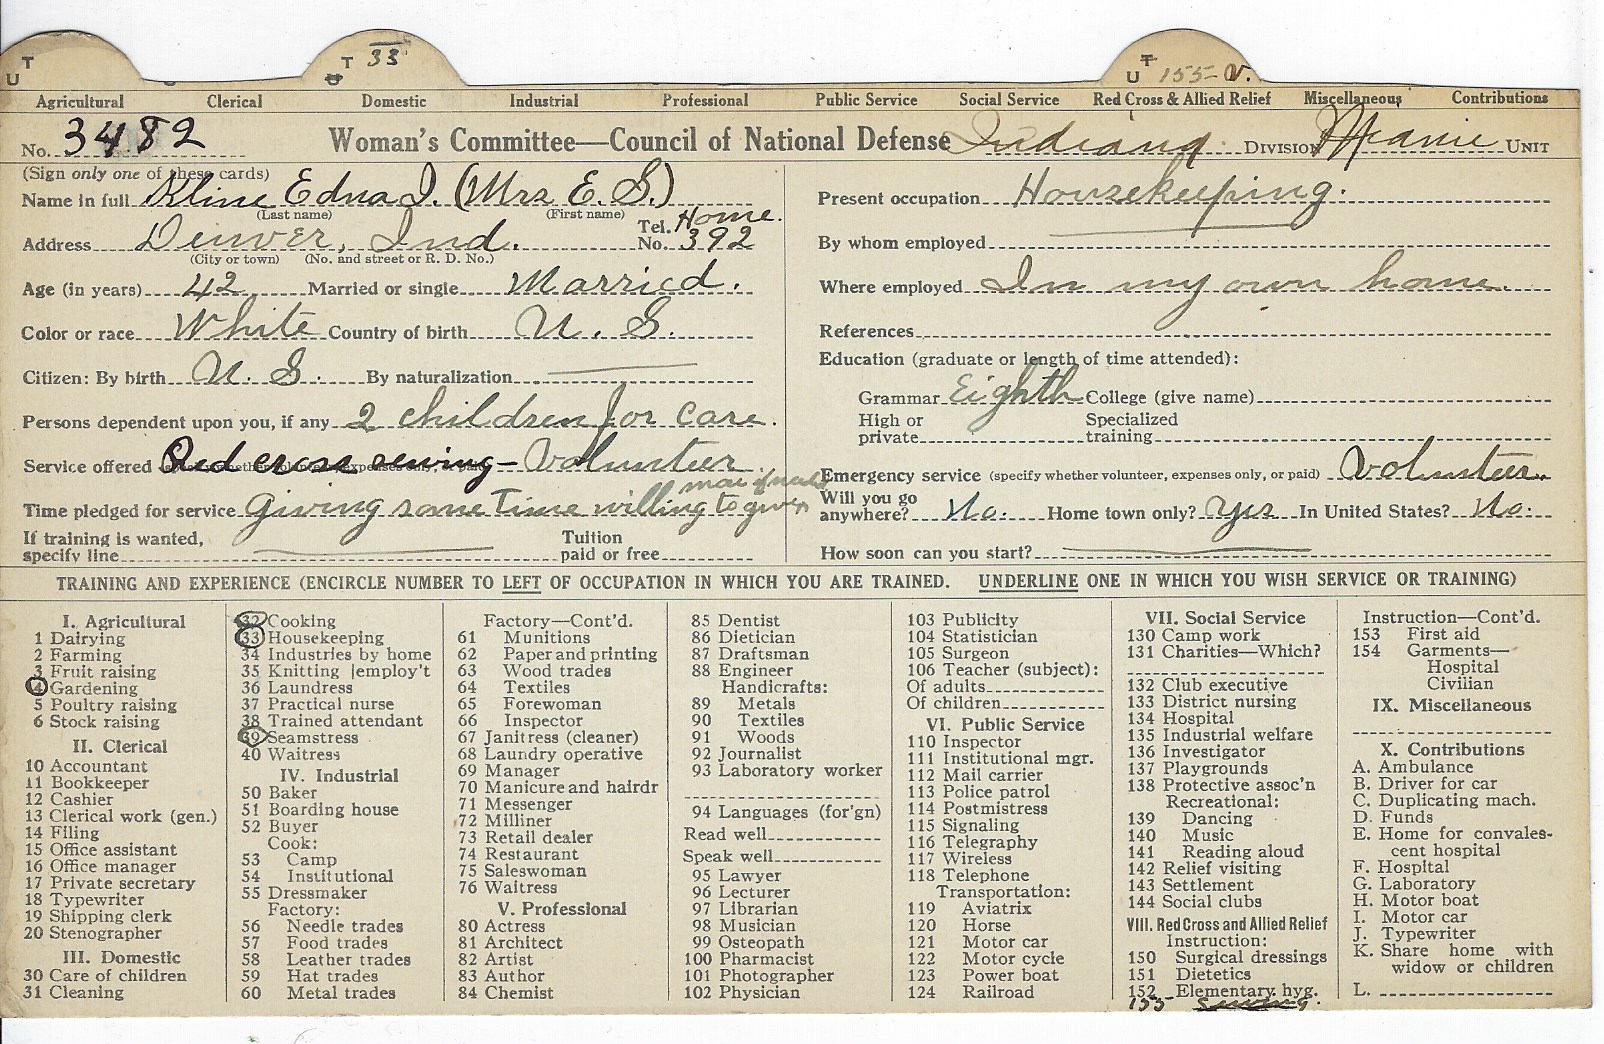 T U
T U 33
T U 155-V.
Agricultural Clerical Domestic Industrial Professional Public Service Social Service Red Cross & Allied Relief Miscellaneous Contributions
No. 3482 Woman's Committee—Council of National Defense Indiana DIVISION UNIT
(Sign only one of these cards)
Name in full Kline Edna J. (Mrs E. S.)
(Last name) (First name)
Address Denver, Ind. Tel. No. Home. 392
(City or town) (No. and street or R. D. No.)
Age (in years) 42 Married or single Married.
Color or race White Country of birth U. S.
Citizen: By birth U. S. By naturalization
Persons dependent upon you, if any 2 children for care.
Service offered Red cross sewing - Volunteer.
Time pledged for service Giving some time willing to give
If training is wanted, specify line Tuition paid or free
Present occupation Housekeeping.
By whom employed
Where employed In my own home.
References
Education (graduate or length of time attended):
Grammar Eighth College (give name)
High or private Specialized training
Emergency service (specify whether volunteer, expenses only, or paid) Volunteer.
Will you go anywhere? No. Home town only? Yes In United States? No.
How soon can you start?
TRAINING AND EXPERIENCE (ENCIRCLE NUMBER TO LEFT OF OCCUPATION IN WHICH YOU ARE TRAINED. UNDERLINE ONE IN WHICH YOU WISH SERVICE OR TRAINING)
I. Agricultural
1 Dairying
2 Farming
3 Fruit raising
4 Gardening
5 Poultry raising
6 Stock raising
II. Clerical
10 Accountant
11 Bookkeeper
12 Cashier
13 Clerical work (gen.)
14 Filing
15 Office assistant
16 Office manager
17 Private secretary
18 Typewriter
19 Shipping clerk
20 Stenographer
III. Domestic
30 Care of children
31 Cleaning
32 Cooking
33 Housekeeping
34 Industries by home
35 Knitting [employ't
36 Laundress
37 Practical nurse
38 Trained attendant
39 Seamstress
40 Waitress
IV. Industrial
50 Baker
51 Boarding house
52 Buyer
Cook:
53 Camp
54 Institutional
55 Dressmaker
Factory:
56 Needle trades
57 Food trades
58 Leather trades
59 Hat trades
60 Metal trades
Factory—Cont'd.
61 Munitions
62 Paper and printing
63 Wood trades
64 Textiles
65 Forewoman
66 Inspector
67 Janitress (cleaner)
68 Laundry operative
69 Manager
70 Manicure and hairdr
71 Messenger
72 Milliner
73 Retail dealer
74 Restaurant
75 Saleswoman
76 Waitress
V. Professional
80 Actress
81 Architect
82 Artist
83 Author
84 Chemist
85 Dentist
86 Dietician
87 Draftsman
88 Engineer
Handicrafts:
89 Metals
90 Textiles
91 Woods
92 Journalist
93 Laboratory worker
94 Languages (for'gn)
Read well
Speak well
95 Lawyer
96 Lecturer
97 Librarian
98 Musician
99 Osteopath
100 Pharmacist
101 Photographer
102 Physician
103 Publicity
104 Statistician
105 Surgeon
106 Teacher (subject):
Of adults
Of children
VI. Public Service
110 Inspector
111 Institutional mgr.
112 Mail carrier
113 Police patrol
114 Postmistress
115 Signaling
116 Telegraphy
117 Wireless
118 Telephone
Transportation:
119 Aviatrix
120 Horse
121 Motor car
122 Motor cycle
123 Power boat
124 Railroad
VII. Social Service
130 Camp work
131 Charities—Which?
132 Club executive
133 District nursing
134 Hospital
135 Industrial welfare
136 Investigator
137 Playgrounds
138 Protective assoc'n
Recreational:
139 Dancing
140 Music
141 Reading aloud
142 Relief visiting
143 Settlement
144 Social clubs
VIII. Red Cross and Allied Relief
Instruction:
150 Surgical dressings
151 Dietetics
152 Elementary hyg.
155 Sewing.
Instruction—Cont'd.
153 First aid
154 Garments—
Hospital
Civilian
IX. Miscellaneous
X. Contributions
A. Ambulance
B. Driver for car
C. Duplicating mach.
D. Funds
E. Home for convales-
cent hospital
F. Hospital
G. Laboratory
H. Motor boat
I. Motor car
J. Typewriter
K. Share home with
widow or children
L.